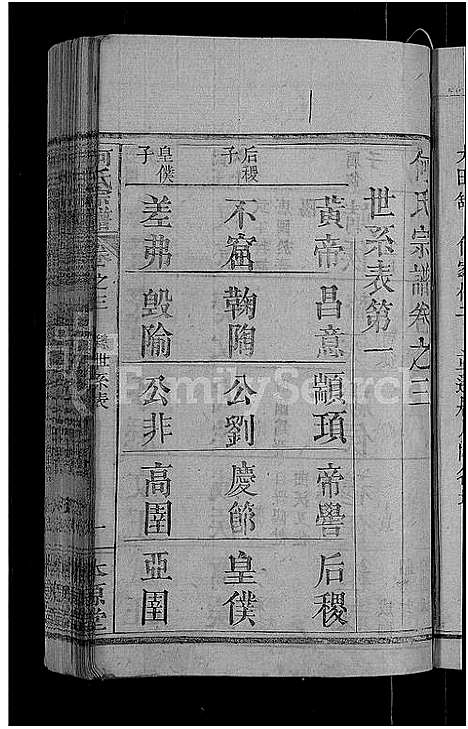 何氏宗譜卷之三
世系表第一
黃帝 昌意 顓頊 帝嚳 后稷
后稷子 不窋 鞠陶 公劉 慶節 皇僕
皇僕子 差弗 毀隃 公非 高圉 亞圉
何氏宗譜 卷之三 世系表 一 本源堂
FamilySearch